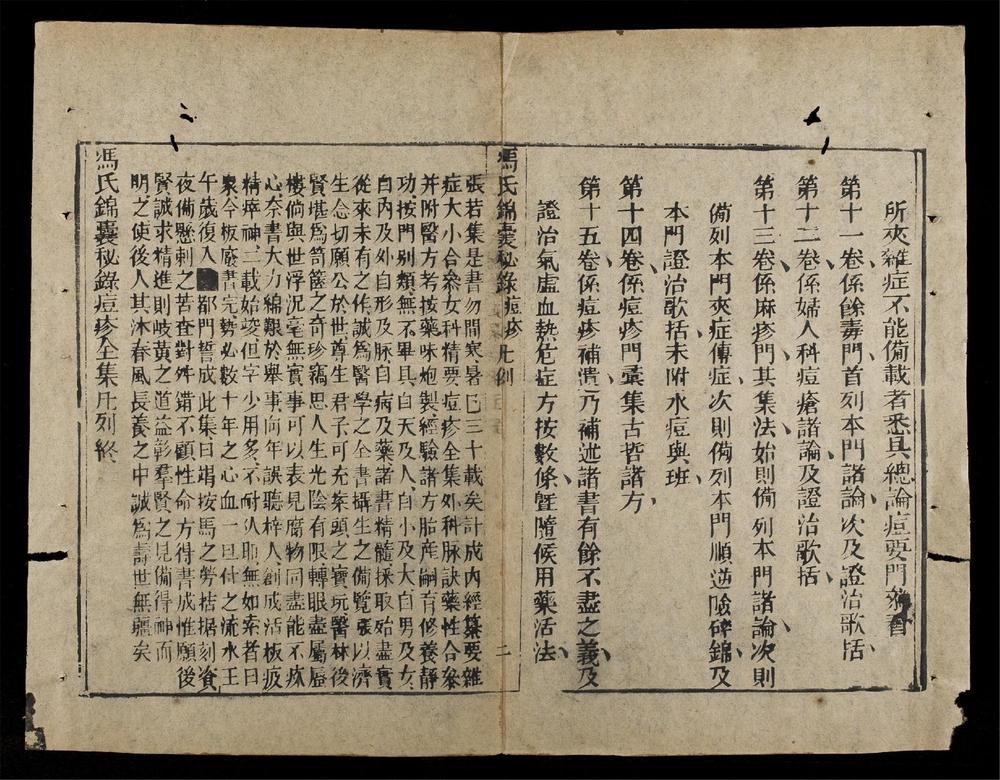 所夾雜症不能備載者悉具總論痘要門
第十一卷係餘毒門首列本門諸論次及證治歌括
第十二卷係婦人科痘瘡諸論及證治歌括
第十三卷係麻疹門其集法始則備列本門諸論次則
備列本門夾症傳症次則備列本門順逆險碎錦及
本門證治歌括末附水痘與班
第十四卷係痘疹門彚集古哲諸方
第十五卷係痘疹補遺乃補述諸書有餘不盡之義及
證治氣虛血熱危症方按數條曁隨候用藥活法
馮氏錦囊秘錄 痘疹凡例 二
張若集是書勿間寒暑已三十載矣計成內經纂要雜
症大小合叅女科精要痘疹全集外科脉訣藥性合叅
并附醫方考按藥味炮製經驗諸方胎產嗣育修養靜
功按門別類無不畢具自天及人自小及大自男及女
自內及外自形及脉自病及藥諸書精髓採取殆盡實
從來未有之作誠為醫學之全書攝生之備覽張以濟
生念切願公於世尊生君子可充案頭之寶玩醫林後
賢堪為笥篋之奇珍竊思人生光陰有限轉眼盡屬蜃
樓倘與世浮沉毫無實事可以表見腐物同盡能不疚
心奈書大力綿艱於舉事向年誤聽梓人創成活板疲
精瘁神二載始竣但字少用多不耐久印無如索者日
衆今板廢書完勢必數十年之心血一旦付之流水王
午歲復入都門誓成此集日竭按馬之勞拮据刻資
夜備懸刺之苦查對舛錯不顧性命方得書成惟願後
賢誠求精進則岐黃之道益彰羣賢之見備得神而
明之使後人其沐春風長養之中誠為壽世無疆矣
馮氏錦囊秘錄痘疹全集凡列終